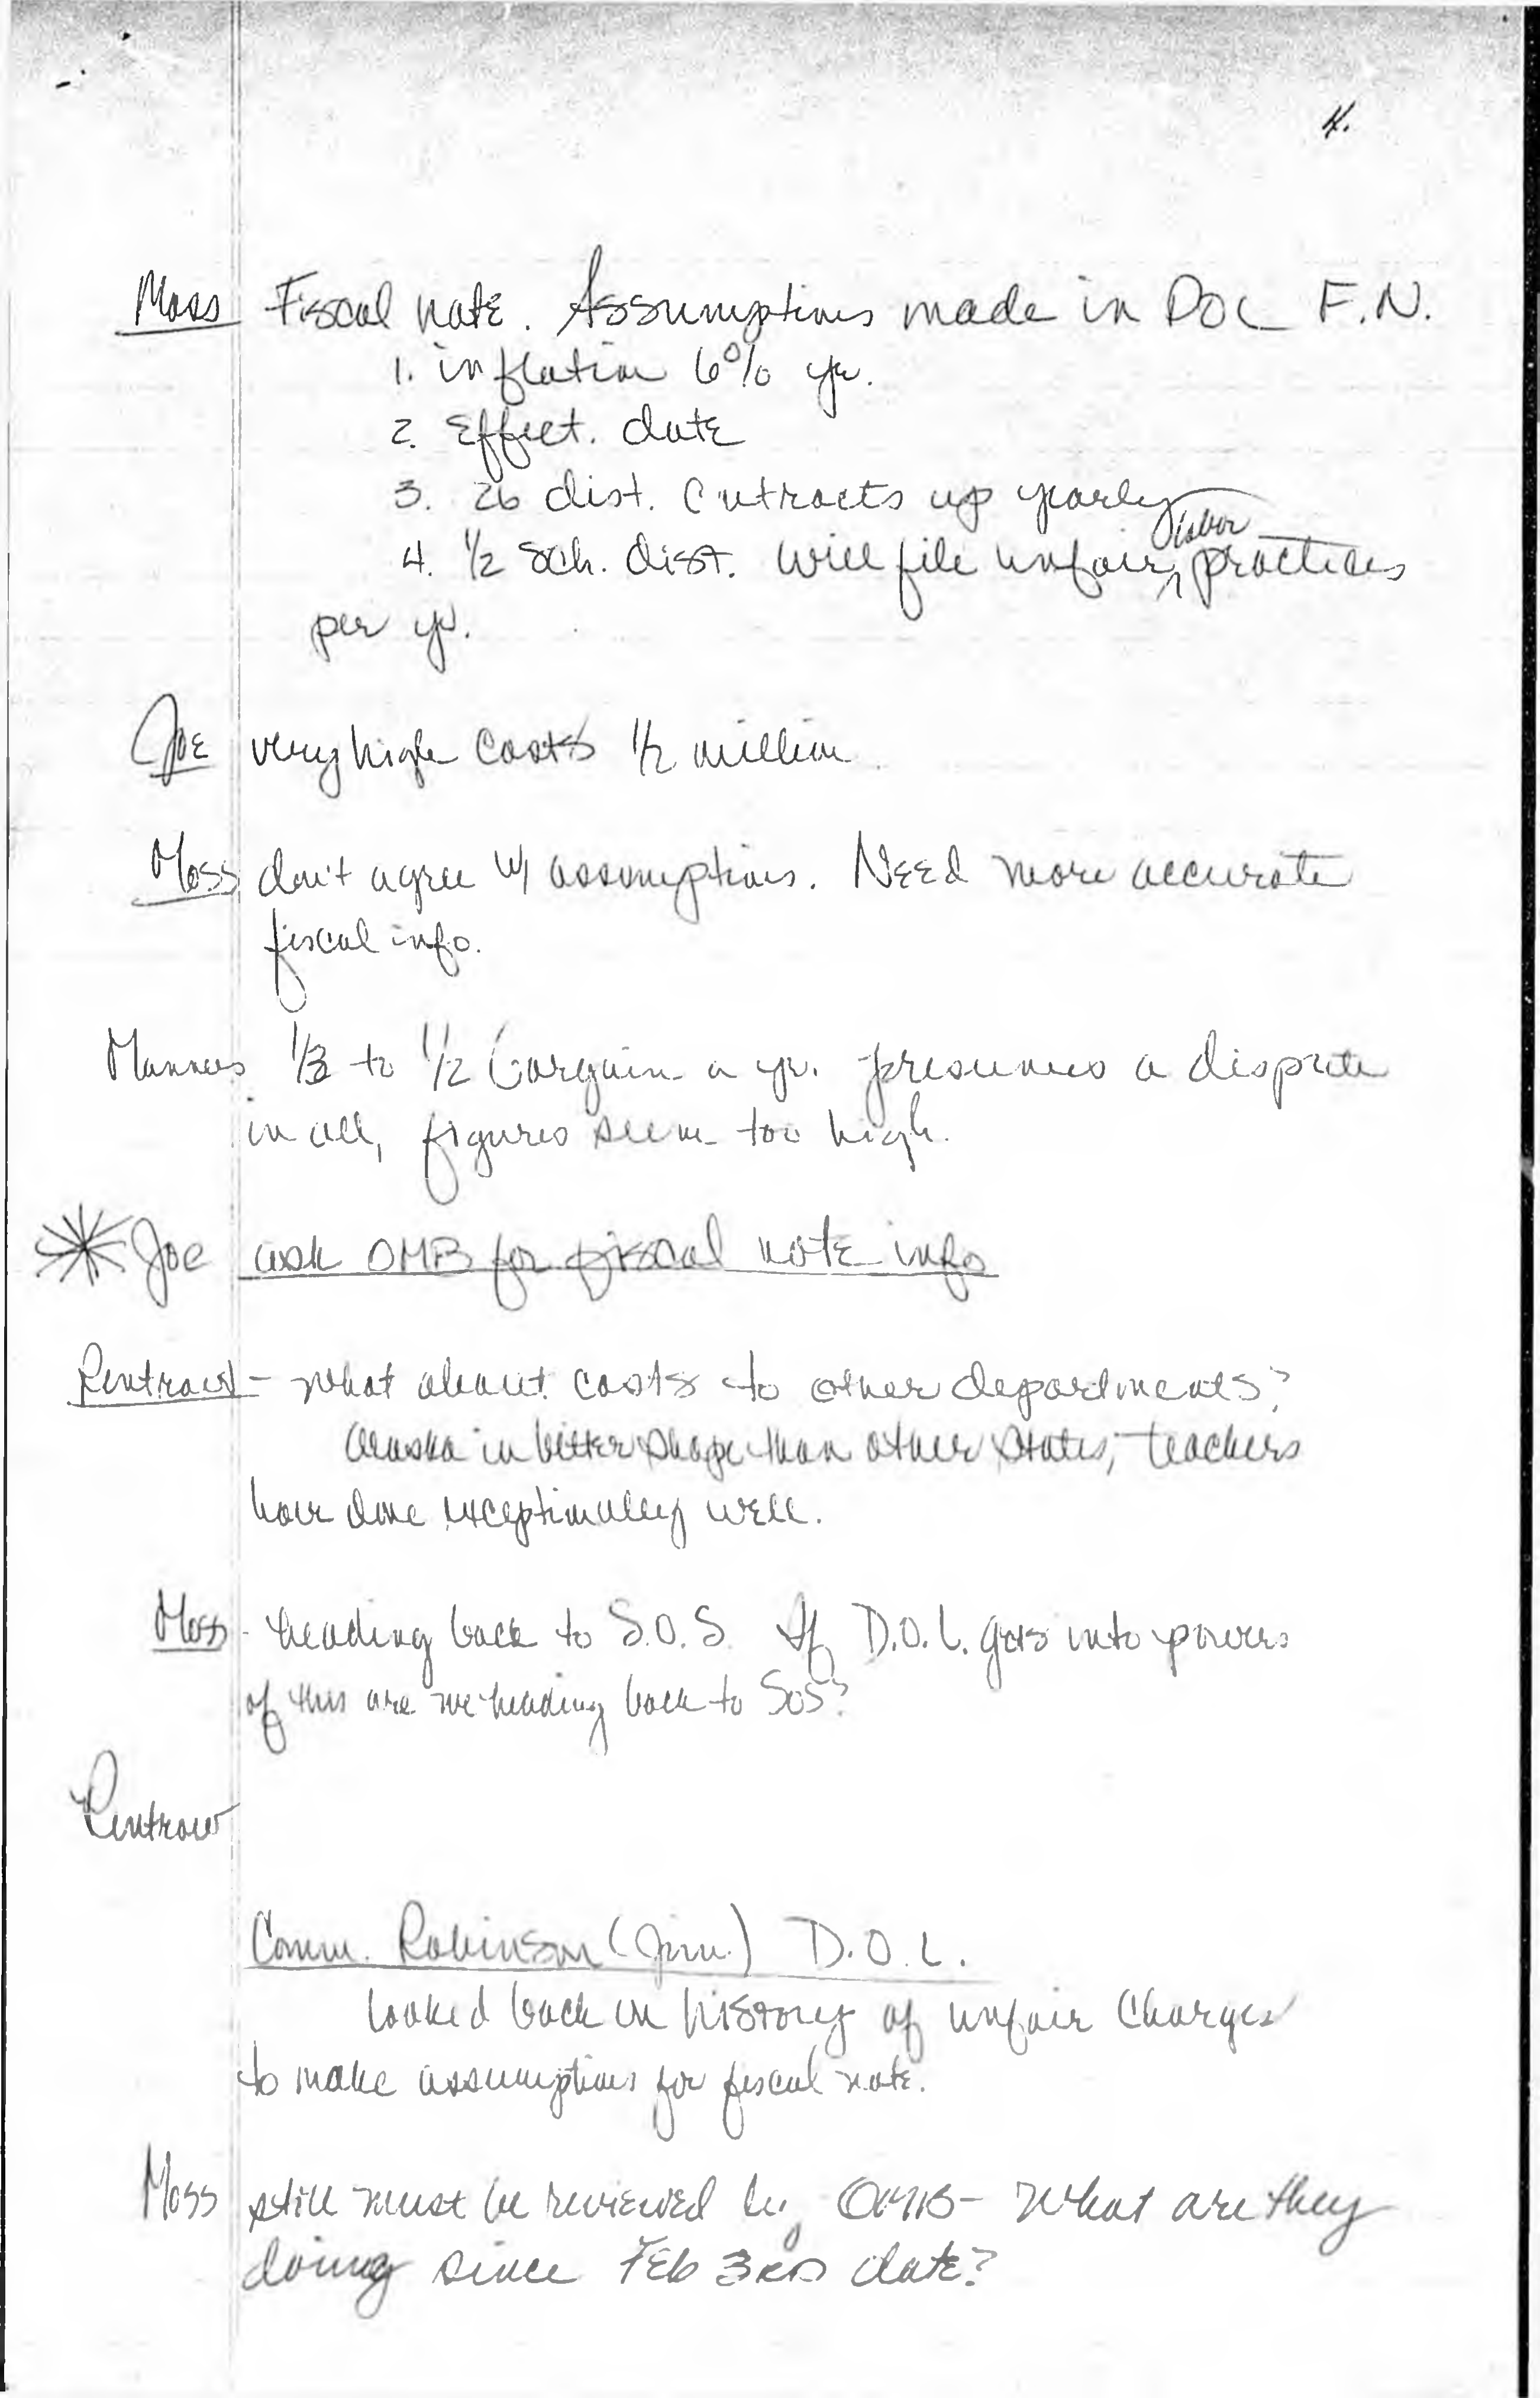 4.
Moss Fiscal note. Assumptions made in DOL F.N.
1. inflation 6% yr.
2. Effect. date
3. 26 dist. Cntracts up yearly
4. 1/2 sch. dist. will file unfair labor practices
per yr.
Joe very high costs 1/2 million.
Moss don't agree w/ assumptions. Need more accurate
fiscal info.
1/3 to 1/2 bargain a yr. presumes a dispute
in all, figures seem too high.
Joe ask OMB for fiscal note info
Rentrow - What about costs to other departments?
Alaska in better shape than other states; teachers
have done exceptionally well.
Moss - heading back to S.O.S. If D.O.L. gets into powers
of this are we heading back to SOS?
Rentrow
Comm. Robinson (Jim) D.O.L.
looked back in history of unfair charges
to make assumptions for fiscal note.
Moss still must be reviewed by OMB - What are they
doing since Feb 3rd date?